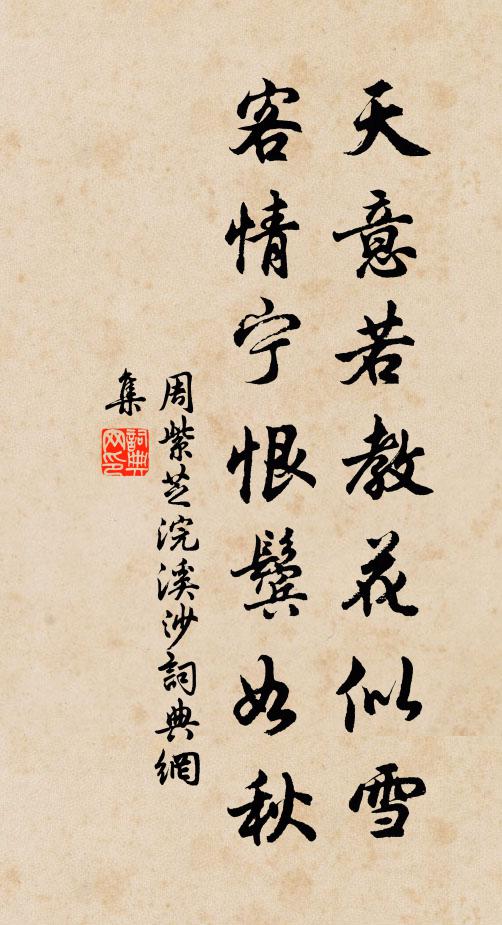 天意若教花似雪
客情宁恨鬓如秋
周紫芝浣溪沙詞典網
集
詞典網印